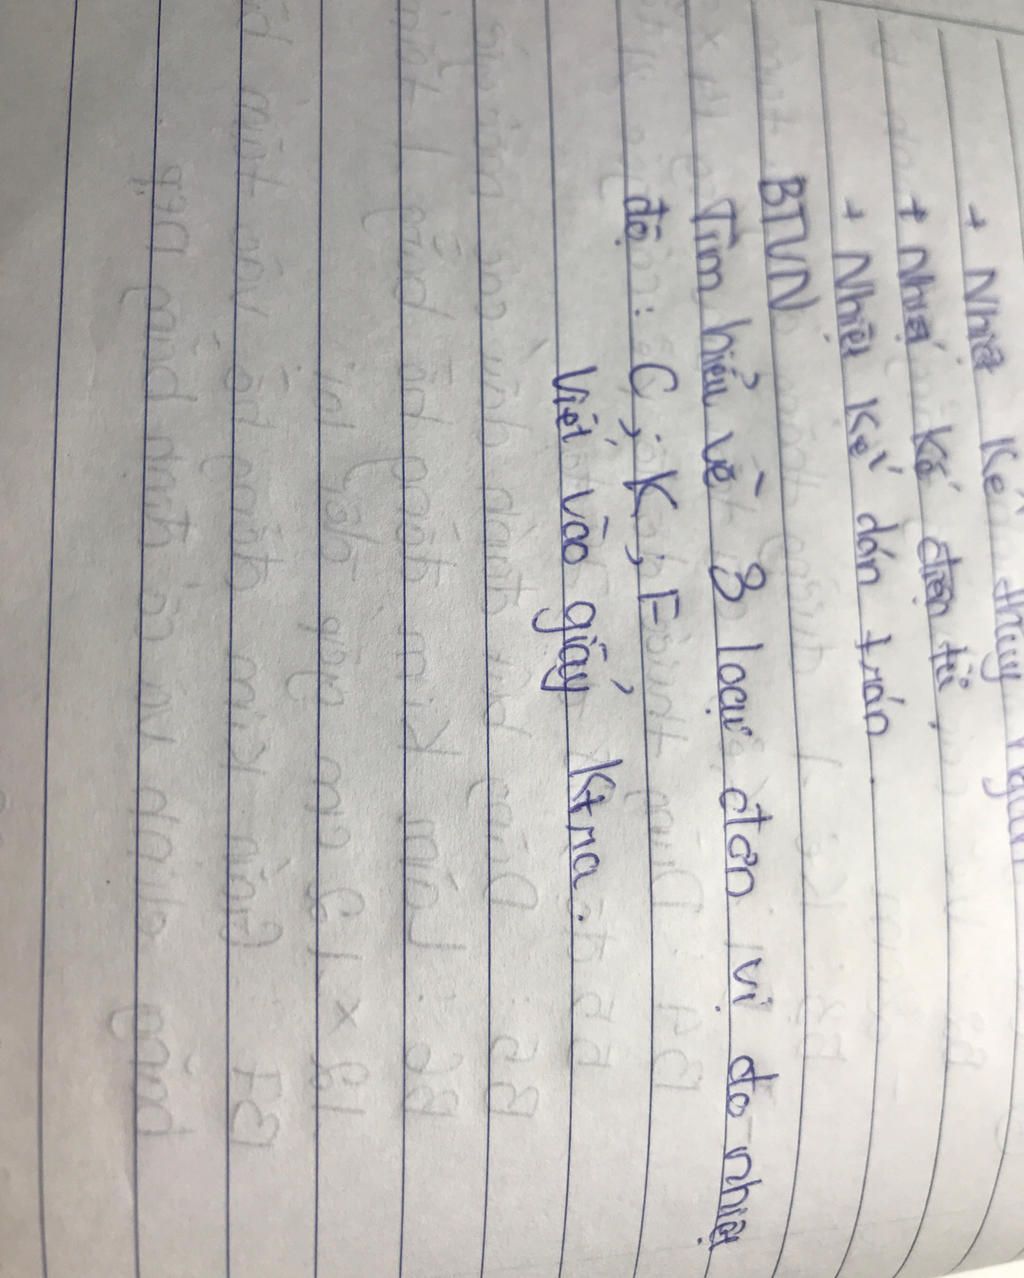 + Nhiệt Kế thủy ngân
+ Nhiệt kế điện tử,
+ Nhiệt Kế dán trán.
BTVN
Tìm hiểu về 3 loại đơn vị đo nhiệt
độ : C, K, F
Viết vào giấy Ktra.